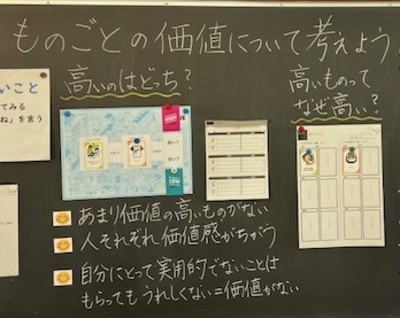 ものごとの価値について考えよう
高いのはどっち？
高いものって
なぜ高い？
いこと
てみる
ね」を言う
あまり価値の高いものがない
人それぞれ価値感がちがう
自分にとって実用的でないことは
もらってもうれしくない=価値がない